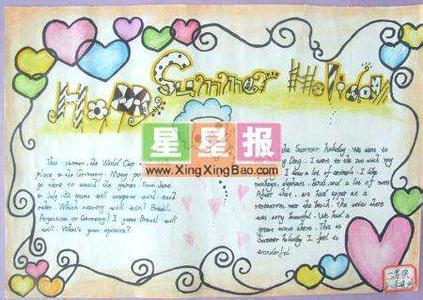 Happy Summer Holiday
星星报
www.XingXingBao.com
This summer, the World Cup
place in the Germany. Many
go there to watch the games. From June
to July. 32 teams will compete with each
other. Which country will win? Brazil,
Argentina or Germany? I guess Brazil will
win. What's your opinion?
the Summer holiday. We went to
I went to the zoo with my
I saw a lot of animals. I like
monkeys, elephants, birds and a lot of more
After that, we had supper at a
restaurant near the beach. The view there
was very beautiful. We had a
great time there. This is
Summer holiday I feel is
wonderful.